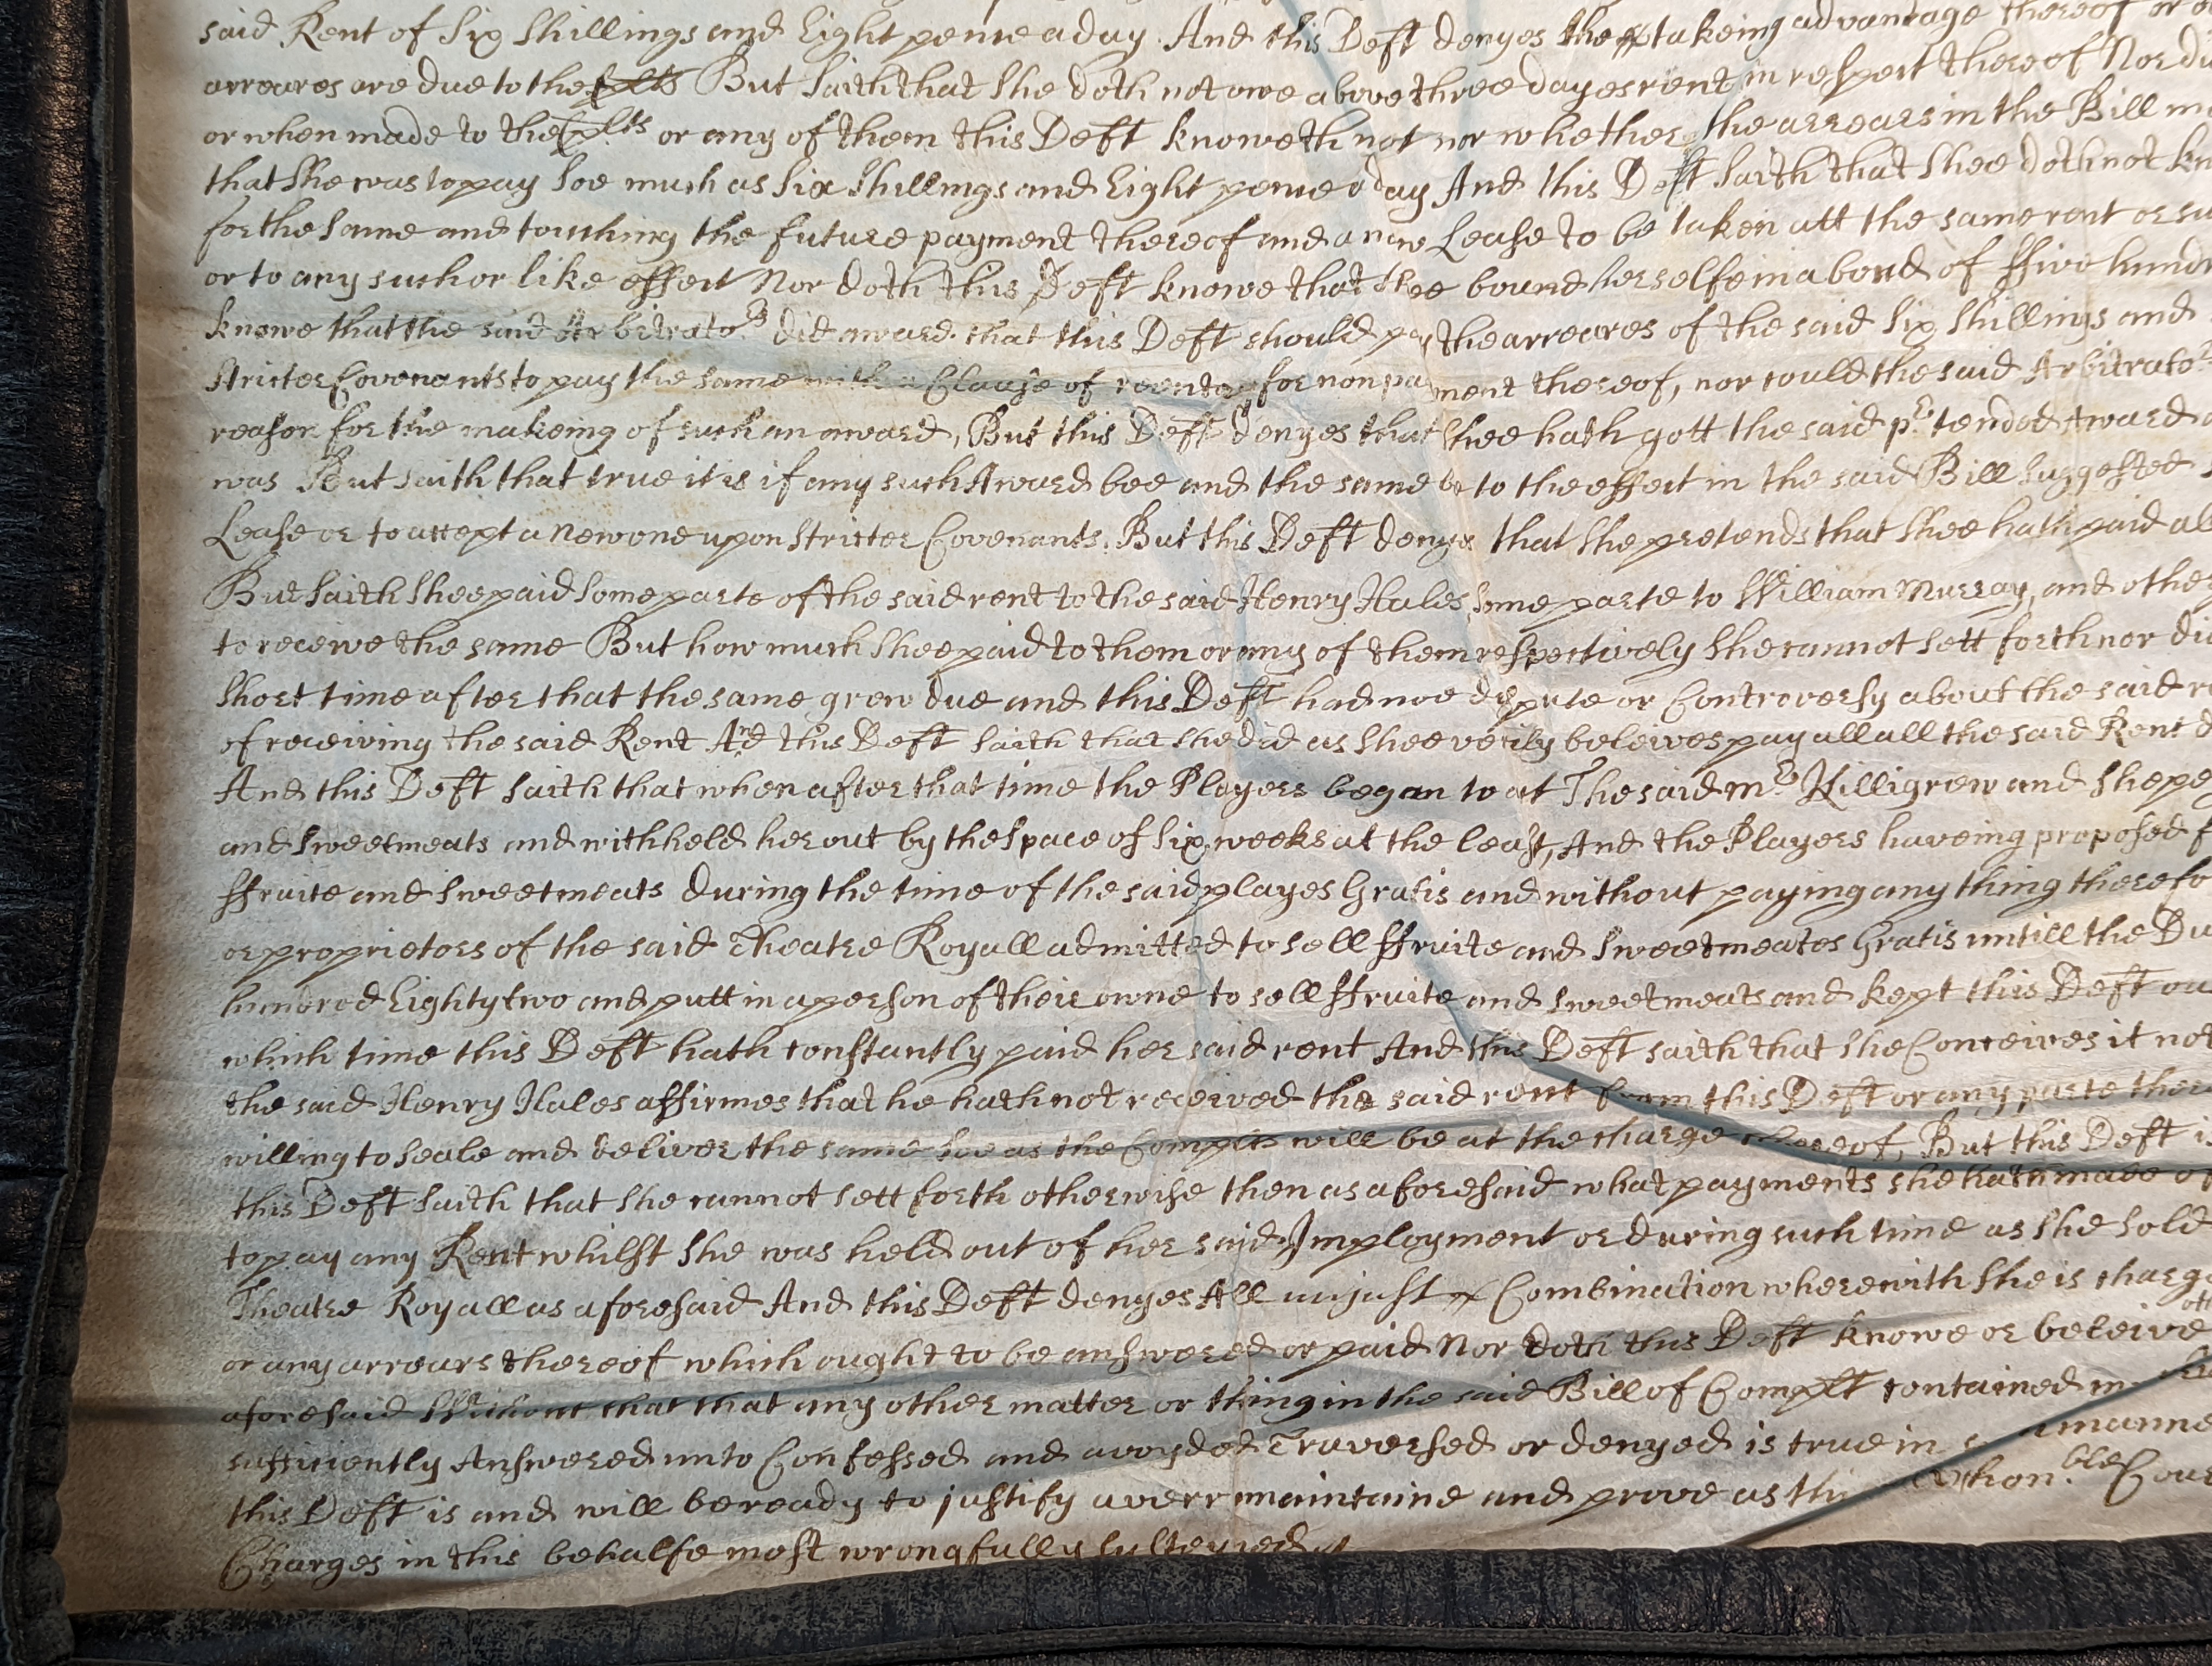 said Rent of Six Shillings and Eight pence a day And this Deft denyes the takeing advantage thereof or
arreares are due to the plts But Saith that She doth not owe above three dayes rent in respect thereof Nor
or when made to the Cplts or any of them this Deft knoweth not nor whether the arrears in the Bill
that She was to pay Soe much as Six Shillings and Eight pence a day And this Deft Saith that Shee doth not
for the Same and touching the future payment thereof and a new Lease to be taken att the same rent or
or to any such or like effect Nor doth this Deft knowe that shee bound herselfe in a bond of ffive
knowe that the said Arbitrators did award that this Deft should pay the arreares of the said Six Shillings and
stricter Covenants to pay the same with a Clause of reentry for non payment thereof, nor could the said Arbitrators
reason for the makeing of such an award, But this Deft denyes that Shee hath gott the said prtended Award
was But Saith that true it is if any such Award bee and the same be to the effect in the said Bill Suggested
Lease or to accept a New one upon Stricter Covenants. But this Deft denyes that She pretends that Shee hath paid
But Saith Shee paid Some parte of the said rent to the said Henry Hales, Some parte to William Murray, and
to receive the same But how much Shee paid to them or any of them respectively She cannot sett forth nor
Short time after that the same grew due and this Deft had noe dispute or Controversy about the said
of receiving the said Rent And this Deft Saith that she did as Shee verily beleives pay all all the said Rent
And this Deft Saith that when after that time the Players began to act The said Mr Killigrew and Shepey
and Sweetmeats and withheld her out by the Space of Six weeks at the least, And the Players haveing proposed
ffruite and Sweetmeats during the time of the said playes Gratis and without paying any thing
or proprietors of the said Theatre Royall admitted to sell ffruite and Sweetmeates Gratis untill the
hundred Eighty two and putt in a person of their owne to sell ffruite and Sweetmeats and kept this Deft
which time this Deft hath constantly paid her said rent And this Deft saith that she Conceives it not
the said Henry Hales affirmes that he hath not received the said rent from this Deft or any parte
willing to Seale and deliver the same Soe as the Complts will be at the charge thereof, But this Deft
this Deft Saith that she cannot sett forth otherwise then as aforesaid what payments she hath made
to pay any Rent whilst She was held out of her said Imployment or during such time as She Sold
Theatre Royall as aforesaid And this Deft denyes All unjust Combination wherewith She is
or any arrears thereof which ought to be answered or paid Nor doth this Deft knowe or beleive
aforesaid Without that that any other matter or thing in the said Bill of Complt contained
sufficiently Answered unto Confessed and avoyded Traversed or denyed is true in
this Deft is and will be ready to justify averr maintaine and prove as this honble
Charges in this behalfe most wrongfully Susteyned